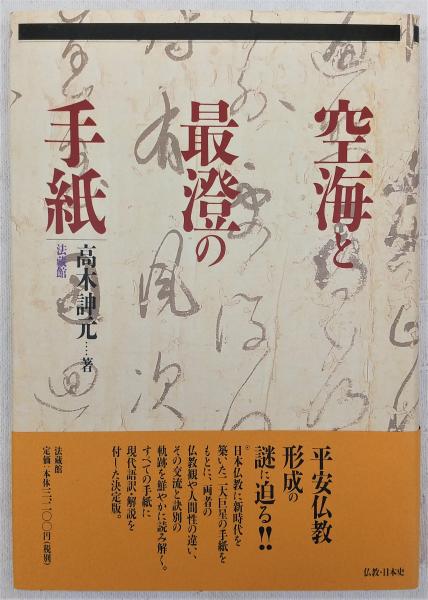 空海と
最澄の
手紙
高木訷元……著
法藏館
平安仏教
形成の
謎に迫る!!
日本仏教に新時代を
築いた二大巨星の手紙を
もとに、両者の
仏教観や人間性の違い、
その交流と訣別の
軌跡を鮮やかに読み解く。
すべての手紙に
現代語訳・解説を
付した決定版。
法藏館
定価:本体三、二〇〇円(税別)
仏教・日本史